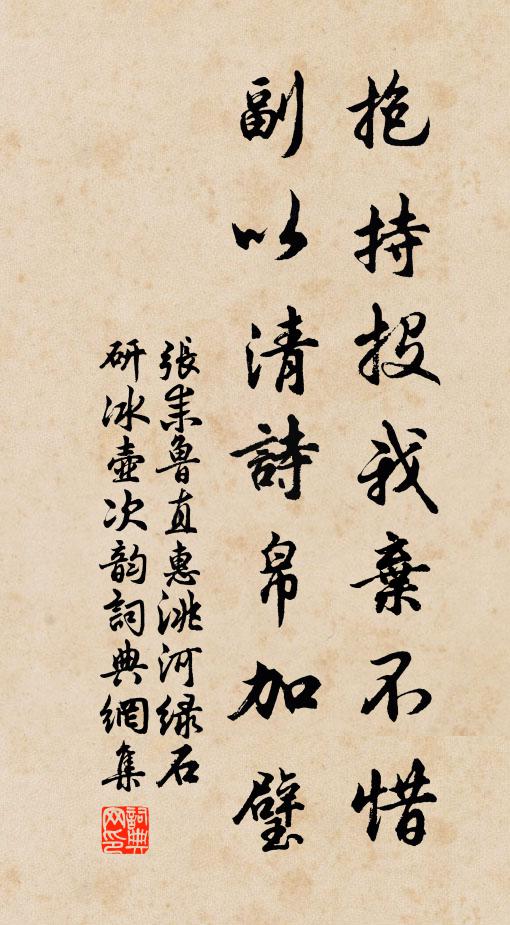 抱持投我棄不惜
副以清詩帛加璧
張耒魯直惠洮河緑石
研冰壺次韵詞典網集
詞典
网印